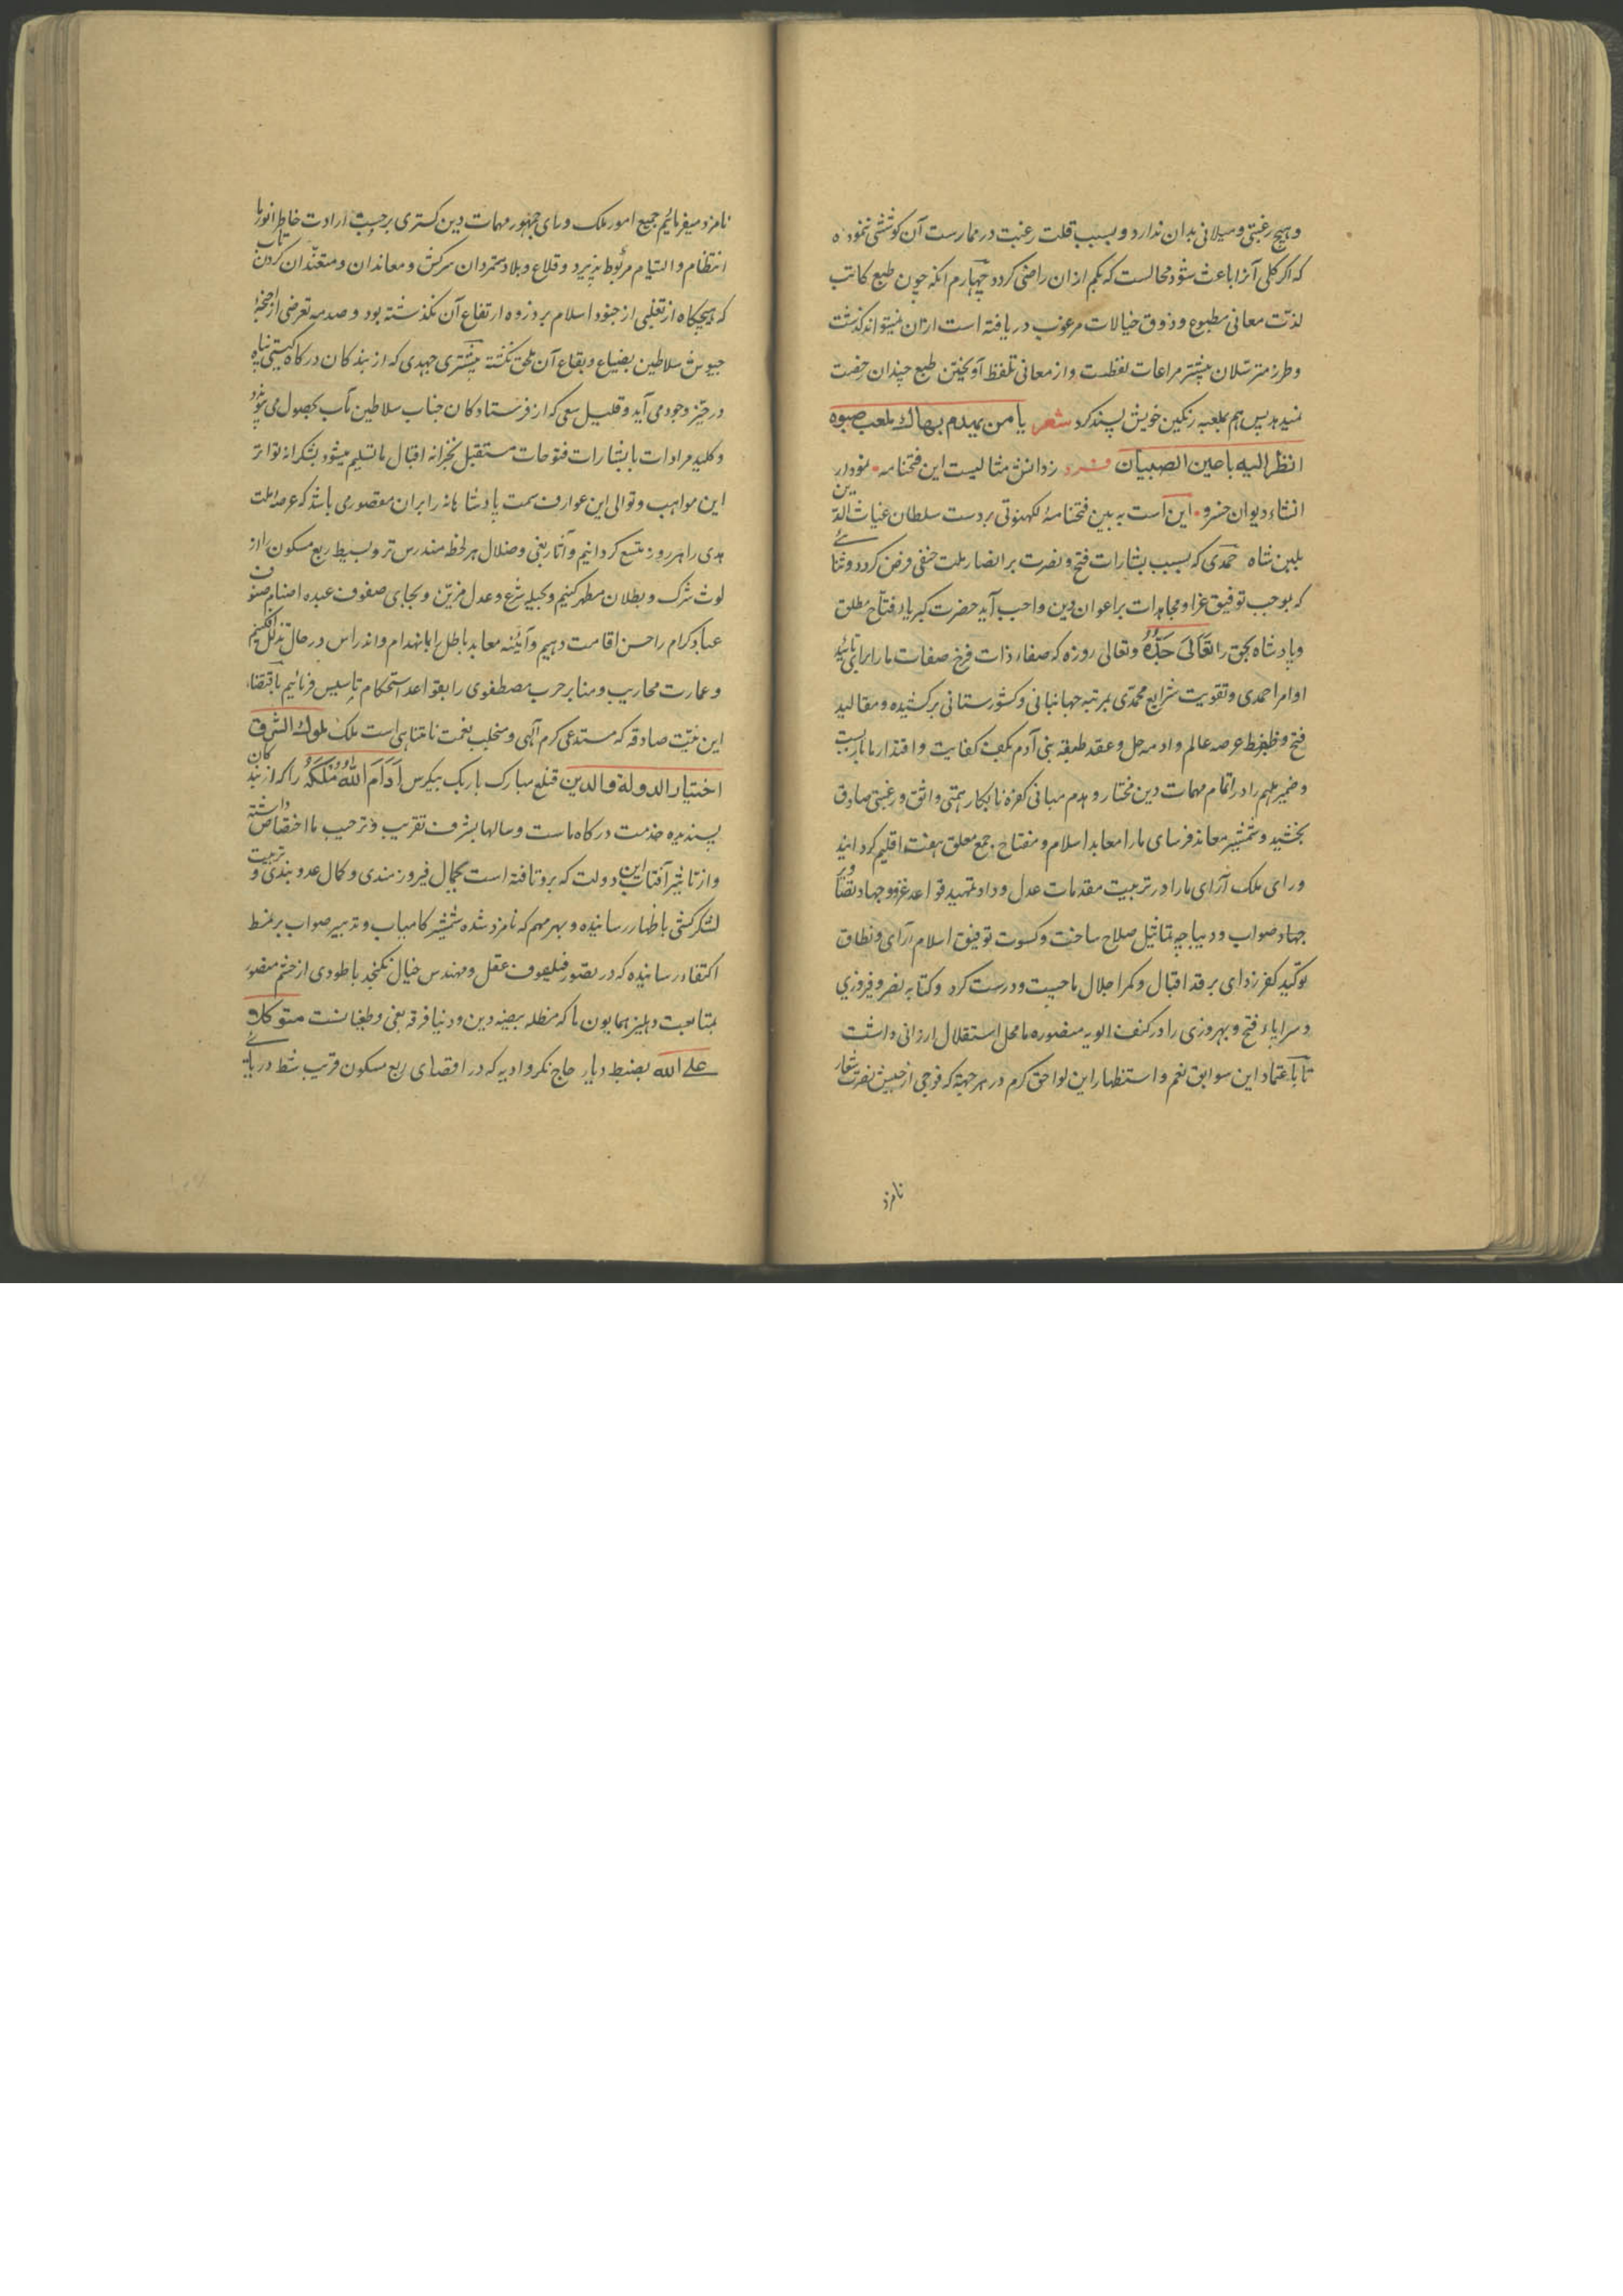 و هیچ رغبتی و میلانی بدان ندارد و بسبب قلت رغبت در ممارست آن کوششی ننموده
که اکر کلی آنرا باعث شود محالست که بکم ازان راضی کردد چهارم انکه چون طبع کاتب
لذت معانی مطبوع و ذوق خیالات مرغوب دریافته است ازان نمیتواند کذشت
و طرز مترسلان بیشتر مراعات لفظست و از معانی تلفظ آویختن طبع چندان رخصت
نمیدهد پس هم بملعبه رنکین خویش پسند کرد شعر یا من یمیدم بهاك بلعب صبوه
انظر الیه باحین الصبیان فرد زدانش مثالیست این فتحنامه نمودار
انشاء دیوان خسرو این است به بین فتحنامهٔ لکهنوتی بردست سلطان غیاث الدین
بلبن شاه حمدی که بسبب بشارات فتح و نصرت بر انصار ملت حنفی فرض کردد و ثنائے
که بموجب توفیق غزا و مجاهدات بر اعوان دین واجب آید حضرت کبریا فتاح مطلق
و پادشاه بحق را تعالی جده و تعالی روزه که صفاء ذات فرخ صفات ما را برای تائید
اوامر احمدی و تقویت شرایع محمدی بمرتبه جهانبانی و کشورستانی برکشیده و مقالید
فتح و ظفر عرصه عالم و ادمه حل و عقد طبقه بنی آدم بکف کفایت و اقتدار ما باز بست
و ضمیر ملهم را در اتمام مهمات دین مختار و هدم مبانی کفره نابکار همتی واثق و رغبتی صادق
بخشید و شمشیر معاند فرسای ما را معابد اسلام و مفتاح جمع معلق هفت اقلیم کردانید
و رای ملک آرای ما را در تربیت مقدمات عدل و داد و تمهید قواعد غزو و جهاد تصاویر
جهاد صواب و دیباچه تماثیل صلاح ساخت و کسوت توفیق اسلام آرای و نطاق
توکید کفر زدای بر قد اقبال و کمر اجلال ما چست و درست کرد و کتابه نصر و فیروزی
و سرایاء فتح و بهروزی را در کنف الویه منصوره ما محل استقلال ارزانی داشت
تا باعتماد این سوابق نعم و استظهار این لواحق کرم در هر جهة که فوجی از جیش نصرت شعار
نامزد
نامزد میفرمائیم جمیع امور ملک ورای جمهور و مهمات دین کستری برحسب ارادت خاطر انور ما
انتظام و التیام مربوط پذیرد و قلاع و بلاد متمردان سرکش و معاندان و متعندان کردن تاب
که هیچکاه از تغلبی از جنود اسلام بر ذروه ارتفاع آن نکذشته بود و صدمه تعرضی از اجنحه
جیوش سلاطین بضیاع و بقاع آن ملحق نکشته بیشتری جهدی که از بندکان درکاه کیتی پناه
در حیز وجود می آید و قلیل سعی که از فرستادکان جناب سلاطین مآب بحصول می پیوندد
و کلید مرادات با بشارات فتوحات مستقبل بخزانه اقبال ما تسلیم میشود بشکرانه تواتر
این مواهب و توالی این عوارف سمت پادشاهانه را بران مقصوری باشد که عرصه ملت
هدی را هر روز متسع کردانیم و آثار بغی و ضلال هر لحظه مندرس تر و بسیط ربع مسکون را از
لوث شرک و بطلان مطهر کنیم و بحیله شرع و عدل مزین و بجای صفوف عبده اصنام صنوف
عباد کرام را حسن اقامت دهیم و آئینه معابد باطل را بانهدام و اندراس در حال تزلزل افکنیم
و عمارت محاریب و منابر حرب مصطفوی را بقواعد استحکام تاسیس فرمائیم باقتضاء
این نیت صادقه که مستدعی کرم آلهی و مستجلب نعمت نامتناهی است ملک ملوك الشرق
اختیار الدولة والدین قتلغ مبارک باربک بیکرس ادام الله ملکه را که از بندکان
پسندیده خدمت درکاه ماست و سالها بشرف تقریب و ترحیب ما اختصاص داشته
و از تاثیر آفتاب این دولت که برو تافته است بکمال فیروزمندی و کمال عدو بندی و تربیت
لشکرکشی باظهار رسانیده و بهر مهم که نامزد شده شمشیر کامیاب و تدبیر صواب بر نمط
اکتفاء رسانیده که در تصور فیلسوف عقل و مهندس خیال نکنجد باطودی از حشم منصور
بمتابعت دهلیز همایون ما که مظله بیضه دین و دنیا فرقه بغی و طغیانست متوکلا
علے الله بضبط دیار جاج نکر و ادیه که در اقصای ربع مسکون قریب شط دریائے